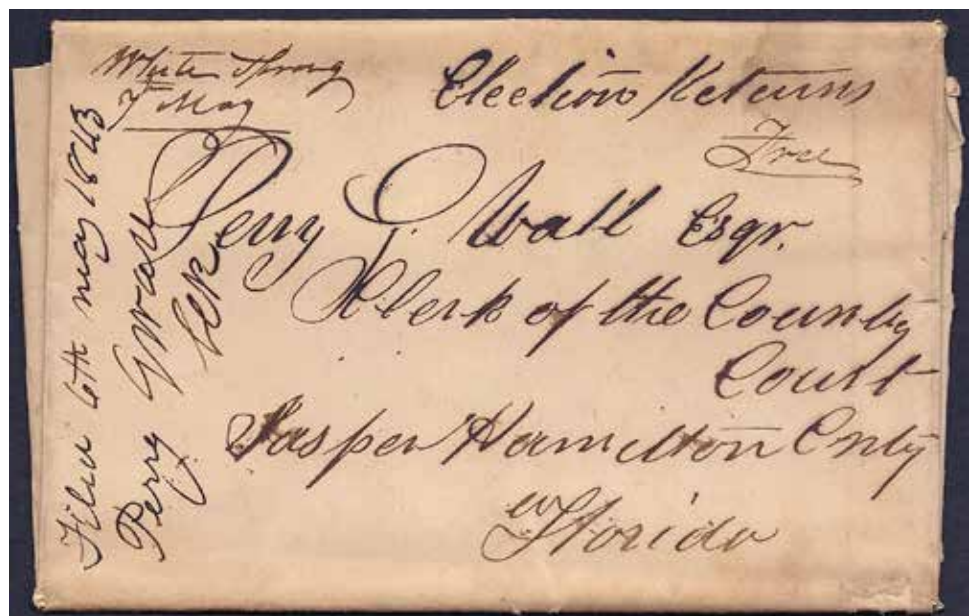 White Spring
7 May
Election Returns
Free
Perry G. Wall Esqr.
Clerk of the County
Court
Jasper Hamilton Cnty
Florida
Filed 6th may 1843
Perry G Wall
Clk